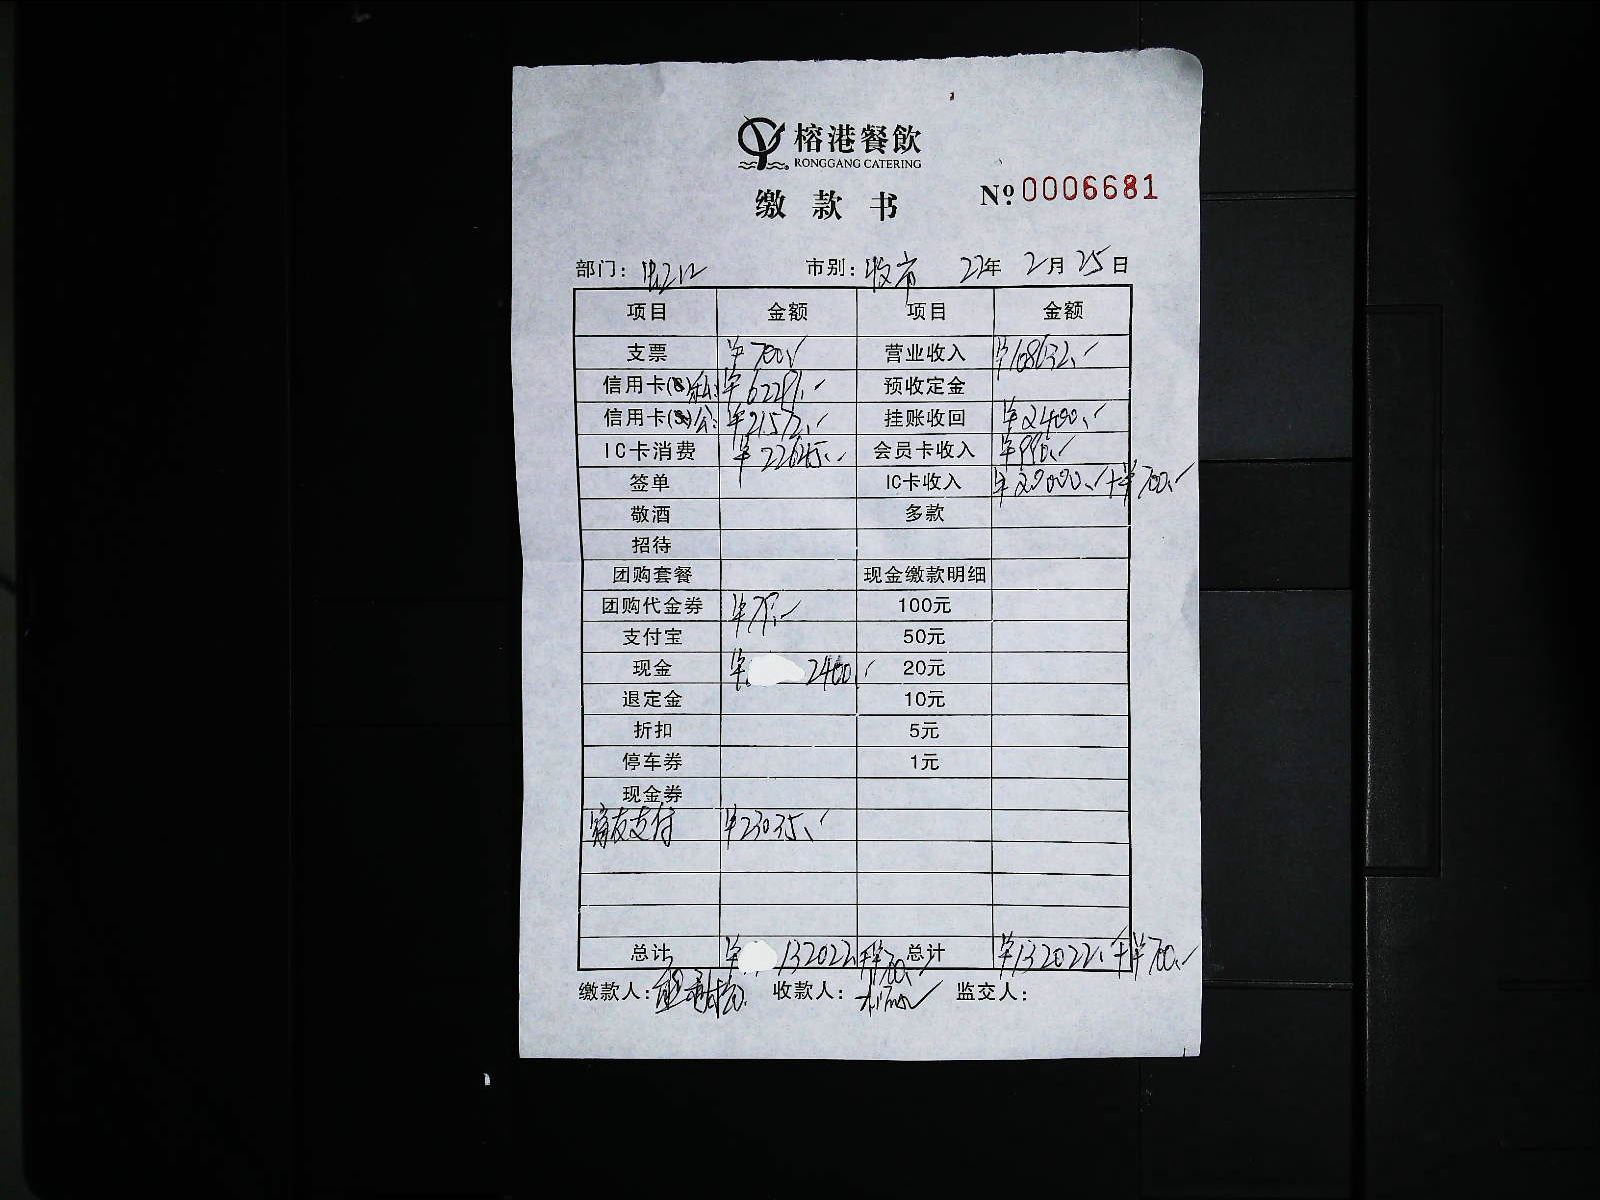 榕港餐飲
RONGGANG CATERING
缴款书
Nº 0006681
部门: 市别: 收市 22年 2月 25日
项目 金额 项目 金额
支票 ¥700 营业收入 ¥108632
信用卡( )私 ¥62291 预收定金
信用卡( )公 ¥21572 挂账收回 ¥2400
IC卡消费 ¥22645 会员卡收入 ¥990
签单 IC卡收入 ¥20000 +¥700
敬酒 多款
招待
团购套餐 现金缴款明细
团购代金券 ¥79 100元
支付宝 50元
现金 ¥2400 20元
退定金 10元
折扣 5元
停车券 1元
现金券
友支付 ¥23035
总计 ¥132022 +¥700 总计 ¥132022 +¥700
缴款人: 收款人: 监交人: